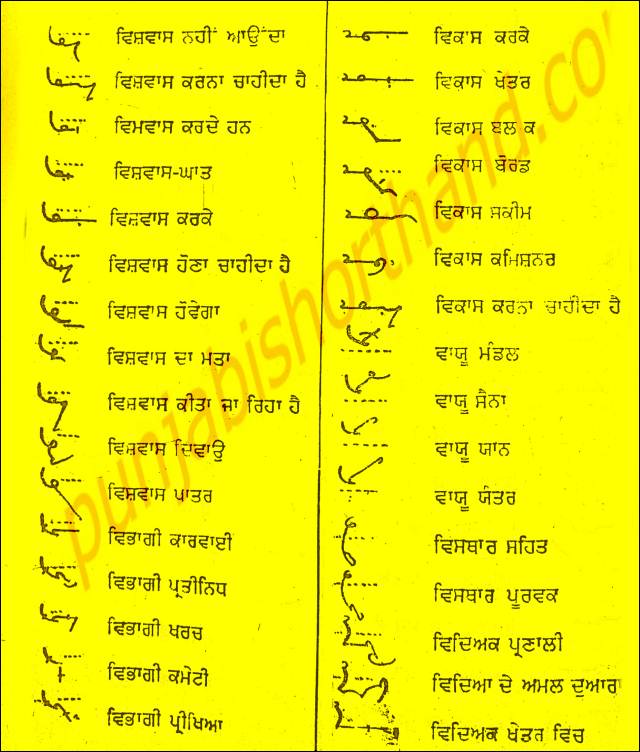 ਵਿਸ਼ਵਾਸ ਨਹੀਂ ਆਉਂਦਾ
ਵਿਸ਼ਵਾਸ ਕਰਨਾ ਚਾਹੀਦਾ ਹੈ
ਵਿਮਵਾਸ ਕਰਦੇ ਹਨ
ਵਿਸ਼ਵਾਸ-ਘਾਤ
ਵਿਸ਼ਵਾਸ ਕਰਕੇ
ਵਿਸ਼ਵਾਸ ਹੋਣਾ ਚਾਹੀਦਾ ਹੈ
ਵਿਸ਼ਵਾਸ ਹੋਵੇਗਾ
ਵਿਸ਼ਵਾਸ ਦਾ ਮਤਾ
ਵਿਸ਼ਵਾਸ ਕੀਤਾ ਜਾ ਰਿਹਾ ਹੈ
ਵਿਸ਼ਵਾਸ ਦਿਵਾਉ
ਵਿਸ਼ਵਾਸ ਪਾਤਰ
ਵਿਭਾਗੀ ਕਾਰਵਾਈ
ਵਿਭਾਗੀ ਪ੍ਰਤੀਨਿਧ
ਵਿਭਾਗੀ ਖਰਚ
ਵਿਭਾਗੀ ਕਮੇਟੀ
ਵਿਭਾਗੀ ਪ੍ਰੀਖਿਆ
ਵਿਕਾਸ ਕਰਕੇ
ਵਿਕਾਸ ਖੇਤਰ
ਵਿਕਾਸ ਬਲਕ
ਵਿਕਾਸ ਬੋਰਡ
ਵਿਕਾਸ ਸਕੀਮ
ਵਿਕਾਸ ਕਮਿਸ਼ਨਰ
ਵਿਕਾਸ ਕਰਨਾ ਚਾਹੀਦਾ ਹੈ
ਵਾਯੂ ਮੰਡਲ
ਵਾਯੂ ਸੈਨਾ
ਵਾਯੂ ਯਾਨ
ਵਾਯੂ ਯੰਤਰ
ਵਿਸਥਾਰ ਸਹਿਤ
ਵਿਸਥਾਰ ਪੂਰਵਕ
ਵਿਦਿਅਕ ਪ੍ਰਣਾਲੀ
ਵਿਦਿਆ ਦੇ ਅਮਲ ਦੁਆਰਾ
ਵਿਦਿਅਕ ਖੇਤਰ ਵਿਚ
punjabishorthand.co